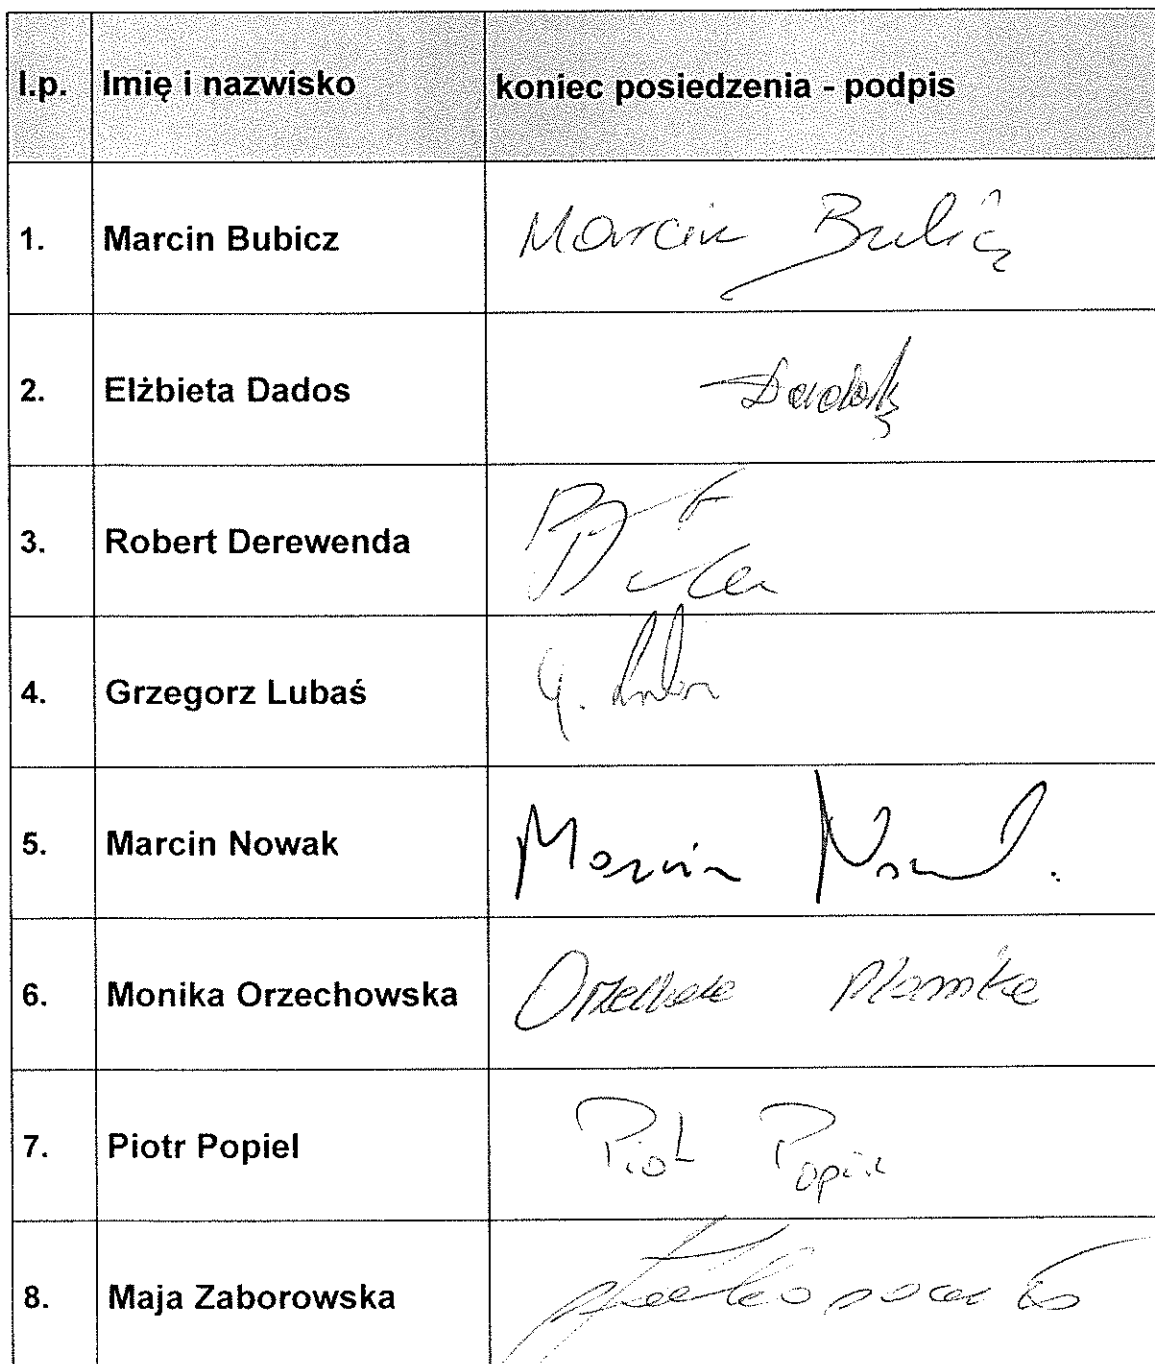 l.p. Imię i nazwisko koniec posiedzenia - podpis
1. Marcin Bubicz Marcin Bubicz
2. Elżbieta Dados
3. Robert Derewenda
4. Grzegorz Lubaś
5. Marcin Nowak Marcin Nowak.
6. Monika Orzechowska
7. Piotr Popiel Piotr Popiel
8. Maja Zaborowska